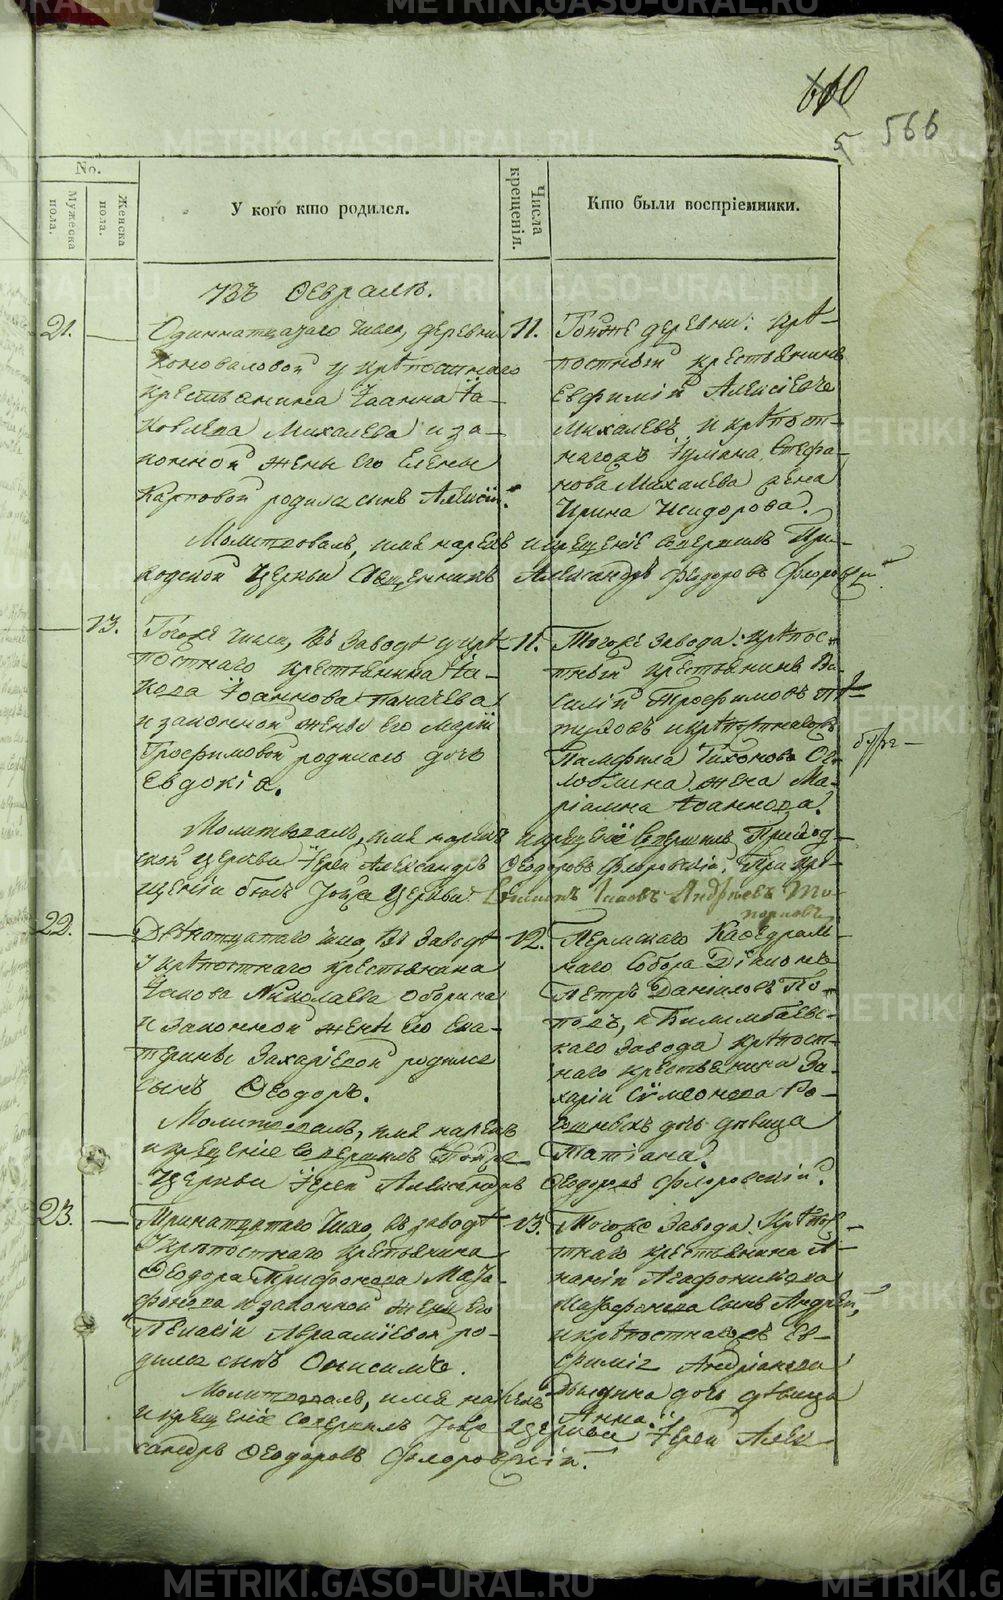 660
5
566
No.
Мужеска пола.
Женска пола.
У кого кто родился.
Числа крещенія.
Кто были воспріемники.
въ Февралѣ.
21.
Одиннатцатаго числа, деревни
Коноваловой у крѣпостнаго
крестьянина Іоанна Іа-
ковлева Михалева и за-
конной жены его Елены
Карповой родился сынъ Алексій.
11.
Тойже деревни: крѣ-
постный крестьянинъ
Евфимій Алексіевъ
Михалевъ, и крѣпост-
нагожъ Стефа-
нова Михалева жена
Ирина Исидорова.
Молитвовалъ, имя нарекъ и крещеніе совершилъ При-
ходской церкви Священникъ Александръ Ѳедоровъ Флоровскій.
13.
Тогоже числа, въ Заводѣ у крѣ-
постнаго крестьянина Іа-
кова Іоаннова Пачиева
и законной жены его Маріи
Трофимовой родилась дочь
Евдокія.
11.
Тогоже завода: крѣпос-
тный крестьянинъ Ва-
силій Трофимовъ Пѣ-
туховъ и крѣпостнагожъ
Памфила Тихонова Ог-
лоблина жена Ма-
ріамна Іоаннова.
Молитвовалъ, имя нарекъ и крещеніе совершилъ Приход-
ской церкви Іерей Александръ Ѳеодоровъ Флоровскій. При кре-
щеніи былъ тойже церкви Андреевъ То-
порковъ
22.
Двѣнатцатаго числа, въ Заводѣ
у крѣпостнаго крестьянина
Іакова Николаева Оборина
и законной жены его Ека-
терины Захаріевой родился
сынъ Ѳеодоръ.
12.
Пермскаго Каѳедраль-
наго Собора Діаконъ
Петръ Даніиловъ По-
повъ, и Билимбаевс-
каго Завода крѣпост-
наго крестьянина За-
харіи Сѵмеонова
дочь дѣвица
Татіана.
Молитвовалъ, имя нарекъ
и крещеніе совершилъ тойже
церкви Іерей Александръ Ѳеодоровъ Флоровскій.
23.
Тринатцатаго числа, въ заводѣ
у крѣпостнаго крестьянина
Ѳеодора Трифонова Мага-
фонова и законной жены его
Пелагіи Авраміевой ро-
дился сынъ Онисимъ.
13.
Тогоже Завода: Крѣпос-
тнаго крестьянина А-
наніи Агафоникова
Магафонова сынъ Андрей,
и крѣпостнагожъ Ев-
фиміа Андріанова
дочь дѣвица
Анна.
Молитвовалъ, имя нарекъ
и крещеніе совершилъ тойже церкви Іерей Алек-
сандръ Ѳеодоровъ Флоровскій.
METRIKI.GASO-URAL.RU